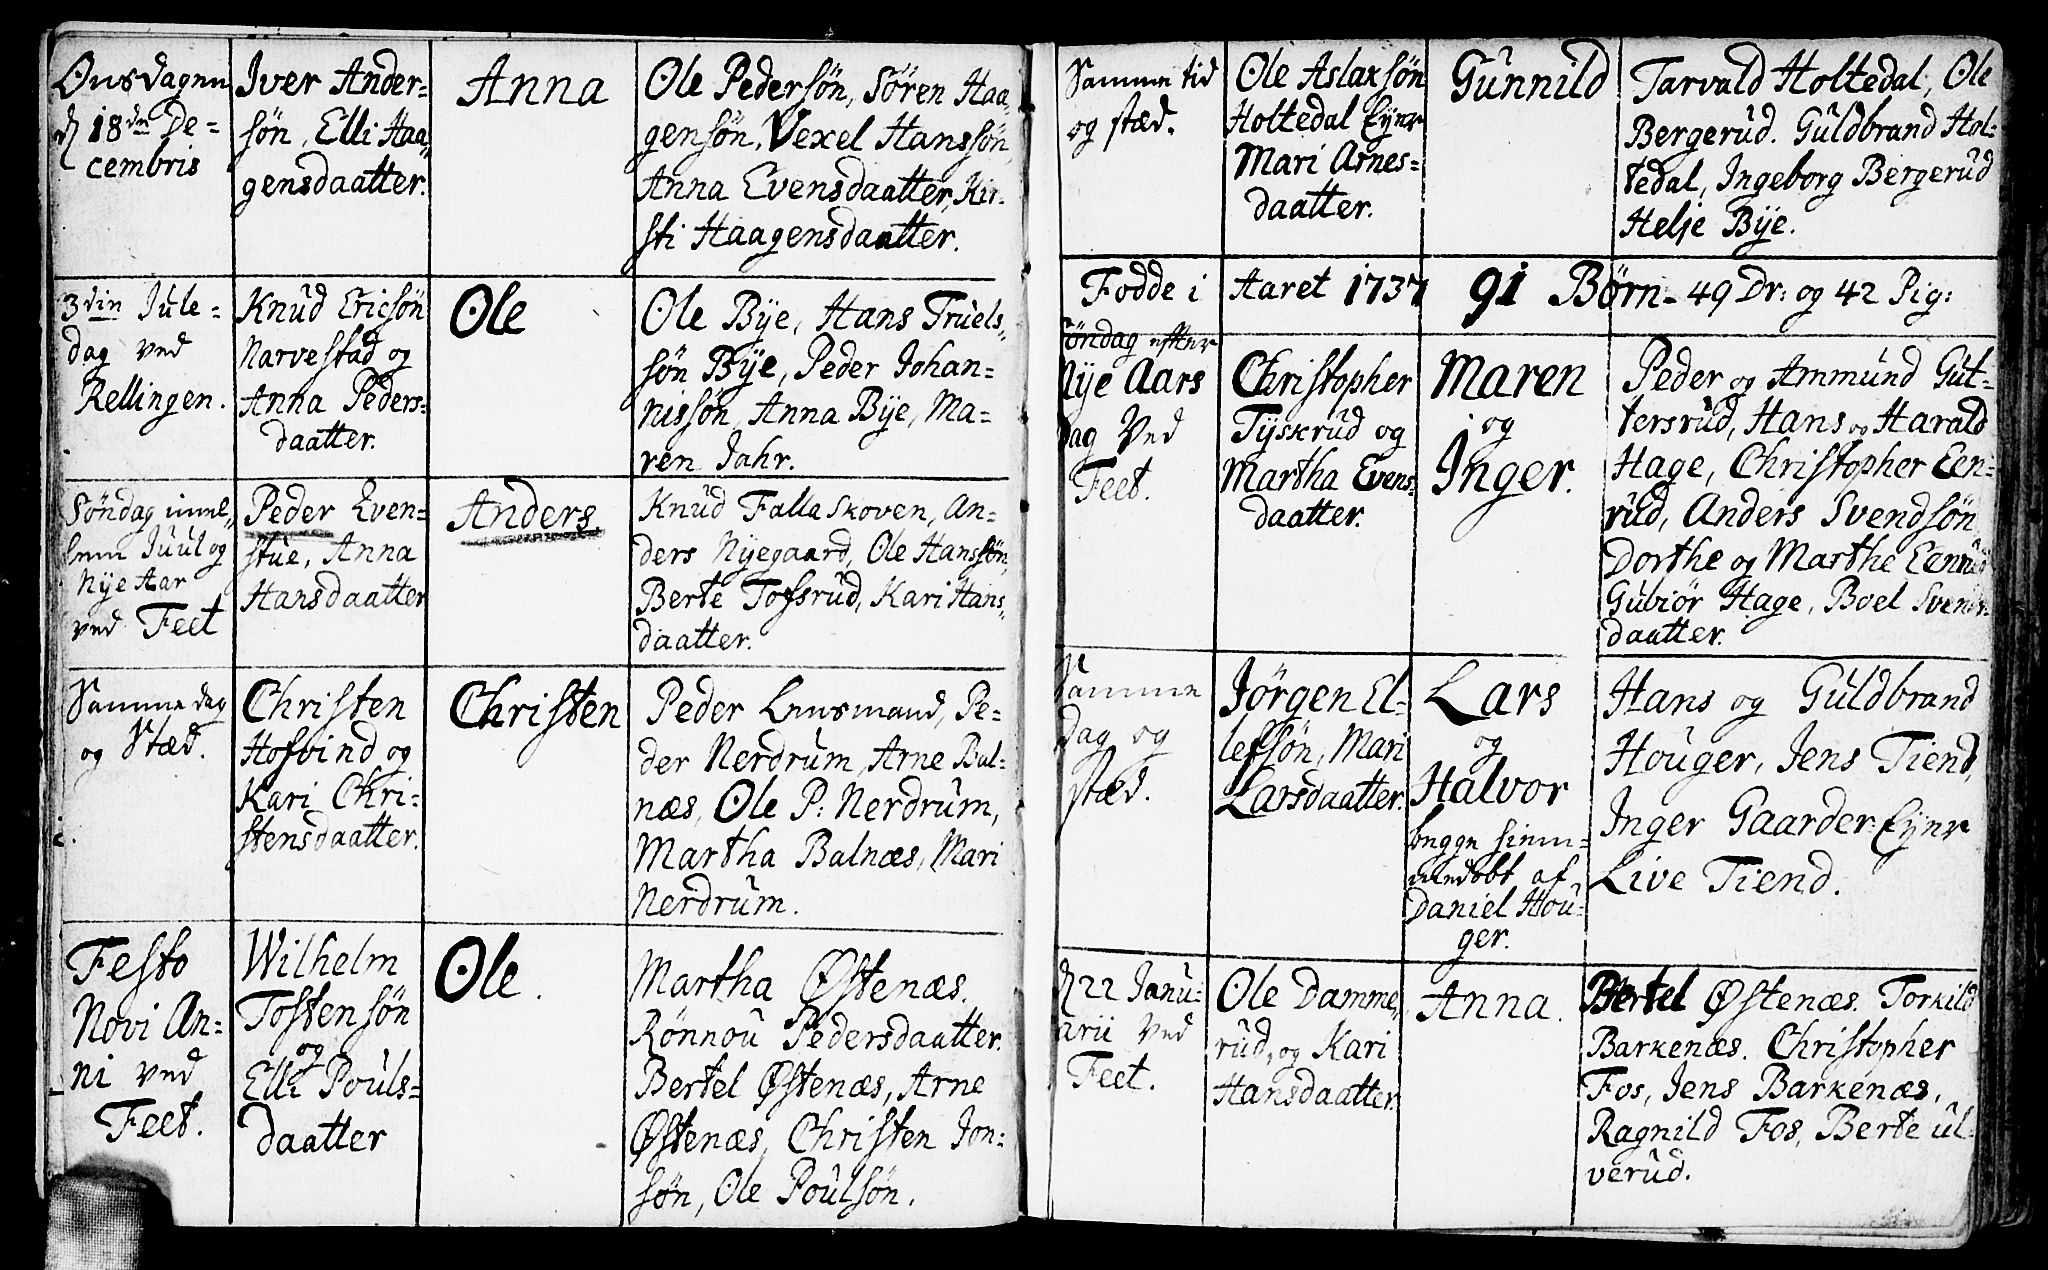 Onsdagen
d 18de De-
cembris
Iver Ander-
søn, Elli Haa-
gensdaatter.
Anna
Ole Pedersøn, Søren Haa-
gensøn, Vexel Hanssøn,
Anna Evensdaatter, Kir-
sti Haagensdaatter.
3die Jule-
dag ved
Rellingen.
Knud Ericsøn
Narvestad og
Anna Peders-
daatter.
Ole
Ole Bÿe, Hans Truels-
søn Bÿe, Peder Johan-
nissøn, Anna Bÿe, Ma-
ren Jahr.
Søndag imel-
lem Juul og
Nÿe Aar
ved Feet
Peder Even-
stue, Anna
Hansdaatter
Anders.
Knud Fallaskoven, An-
ders Nÿegaard, Ole Hanssøn,
Berte Tofsrud, Kari Hans-
daatter.
Samme dag
og Stæd.
Christen
Hofvind og
Kari Chri-
stensdaatter.
Christen
Peder Lensmand, Pe-
der Nerdrum, Arne Bal-
næs, Ole P: Nerdrum,
Martha Balnæs, Mari
Nerdrum.
Festo
Novi An-
ni ved
Feet.
Wilhelm
Tostensøn
og
Elli Pouls-
daatter
Ole.
Martha Østenæs.
Rønnou Pedersdaatter.
Bertel Østenæs, Arne
Østenæs, Christen Jon-
søn, Ole Poulsøn.
Samme tid
og stæd.
Ole Aslaxsøn
Holtedal Eÿer
Mari Arnes-
daatter.
Gunnild
Tarvald Holtedal, Ole
Bergerud. Guldbrand Hol-
tedal, Ingeborg Bergerud
Helje Bÿe.
Fødde i Aaret 1737 91 Børn - 49 Dr: og 42 Pig:
Søndag efter
Nÿe Aars
dag Ved
Feet.
Christopher
Tÿskrud og
Martha Evens-
daatter.
Maren
og
Inger.
Peder og Ammund Gut-
tersrud, Hans og Harald
Hage, Christopher Een-
rud, Anders Svendsøn
Dorthe og Marthe Eenrud
Gubiør Hage, Boel Svends-
daatter.
Samme
dag og
stæd.
Jørgen El-
lefsøn, Mari
Larsdaatter.
Lars
og
Halvor
begge hiem-
medøbt af
Daniel Hou-
ger.
Hans og Guldbrand
Houger, Jens Tiend,
Inger Gaarder Eÿer
Live Tiend.
d 22 Janu-
arii ved
Feet.
Ole Damme-
rud, og Kari
Hansdaatter.
Anna.
Bertel Østenæs. Torkild
Barkenæs. Christopher
Fos, Jens Barkenæs,
Ragnild Fos, Berte Ul-
verud.